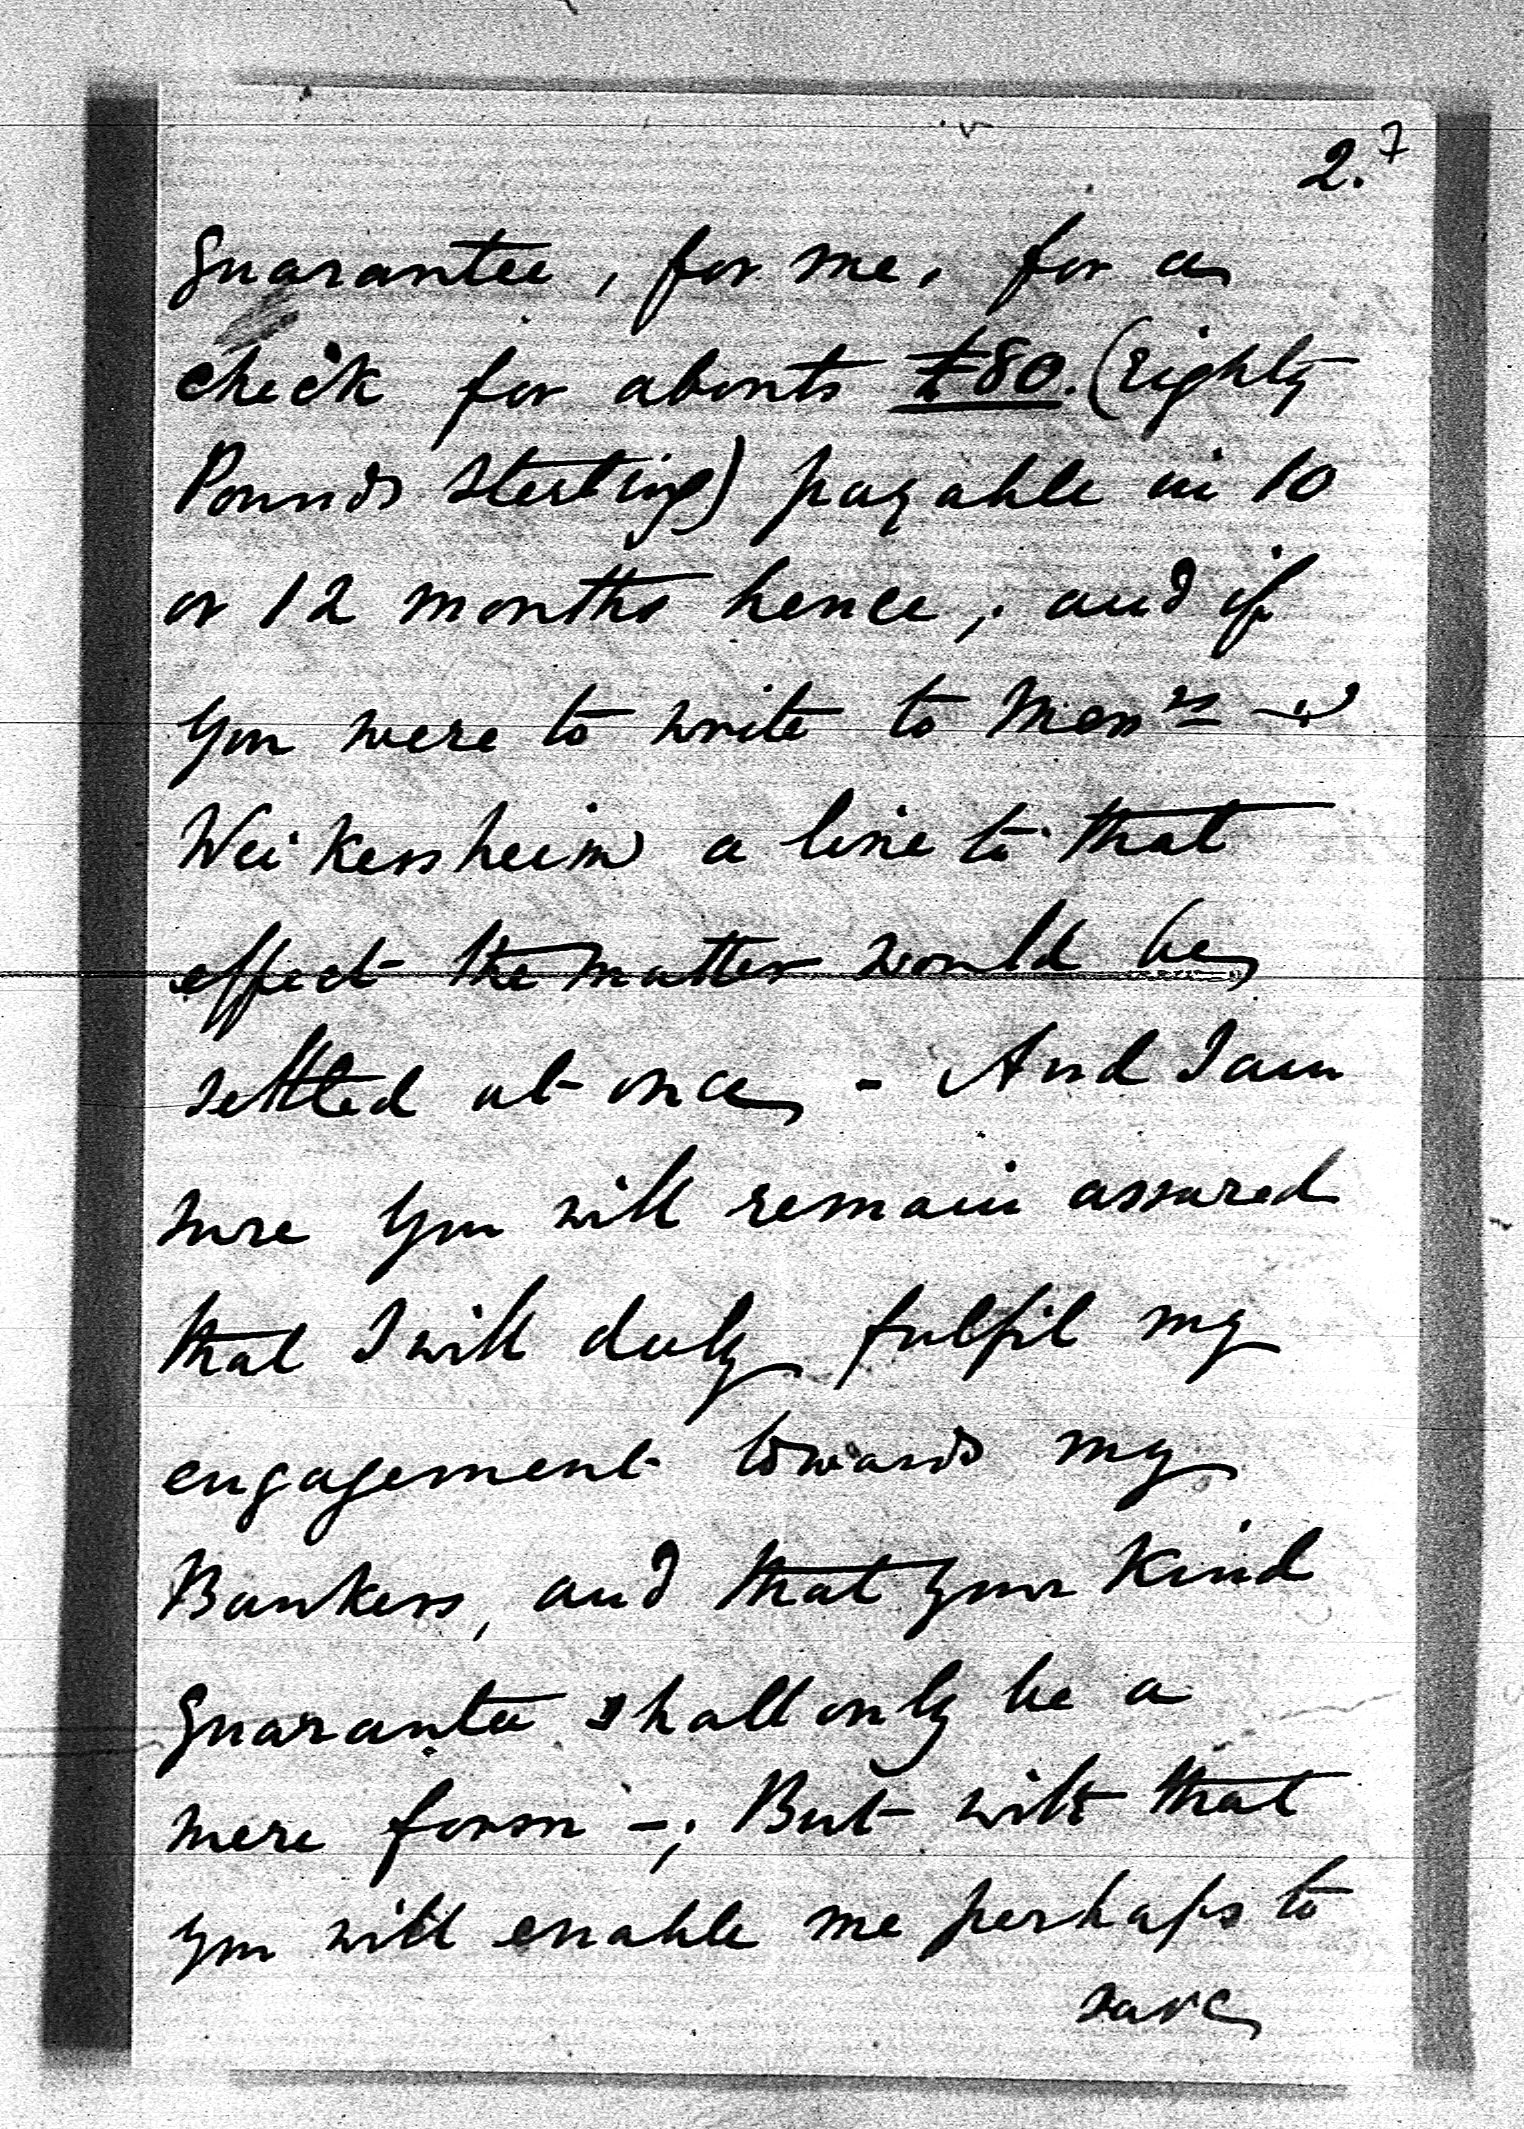 2. 7
Guarantee, for me, for a
check for about £80. (Eighty
Pounds Sterling) payable in 10
or 12 months hence, and if
you were to write to Messrs
Weikersheim a line to that
effect the matter would be
settled at once, - And I am
sure you will remain assured
that I will duly fulfil my
engagement towards my
Bankers, and that your kind
Guarantee shall only be a
mere form -; But with that
you will enable me perhaps to
save